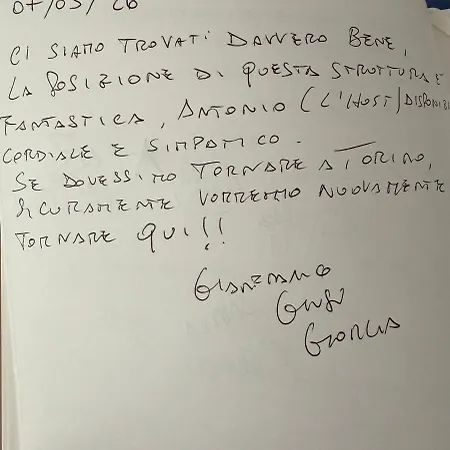 07/05/26
CI SIAMO TROVATI DAVVERO BENE,
LA POSIZIONE DI QUESTA STRUTTURA È
FANTASTICA, ANTONIO (L'HOST) DISPONIBI
CORDIALE E SIMPATICO.
SE DOVESSIMO TORNARE A TORINO,
SICURAMENTE VORREMMO NUOVAMENTE
TORNARE QUI!!
GIANFRANCO
GIUSY
GIORGIA